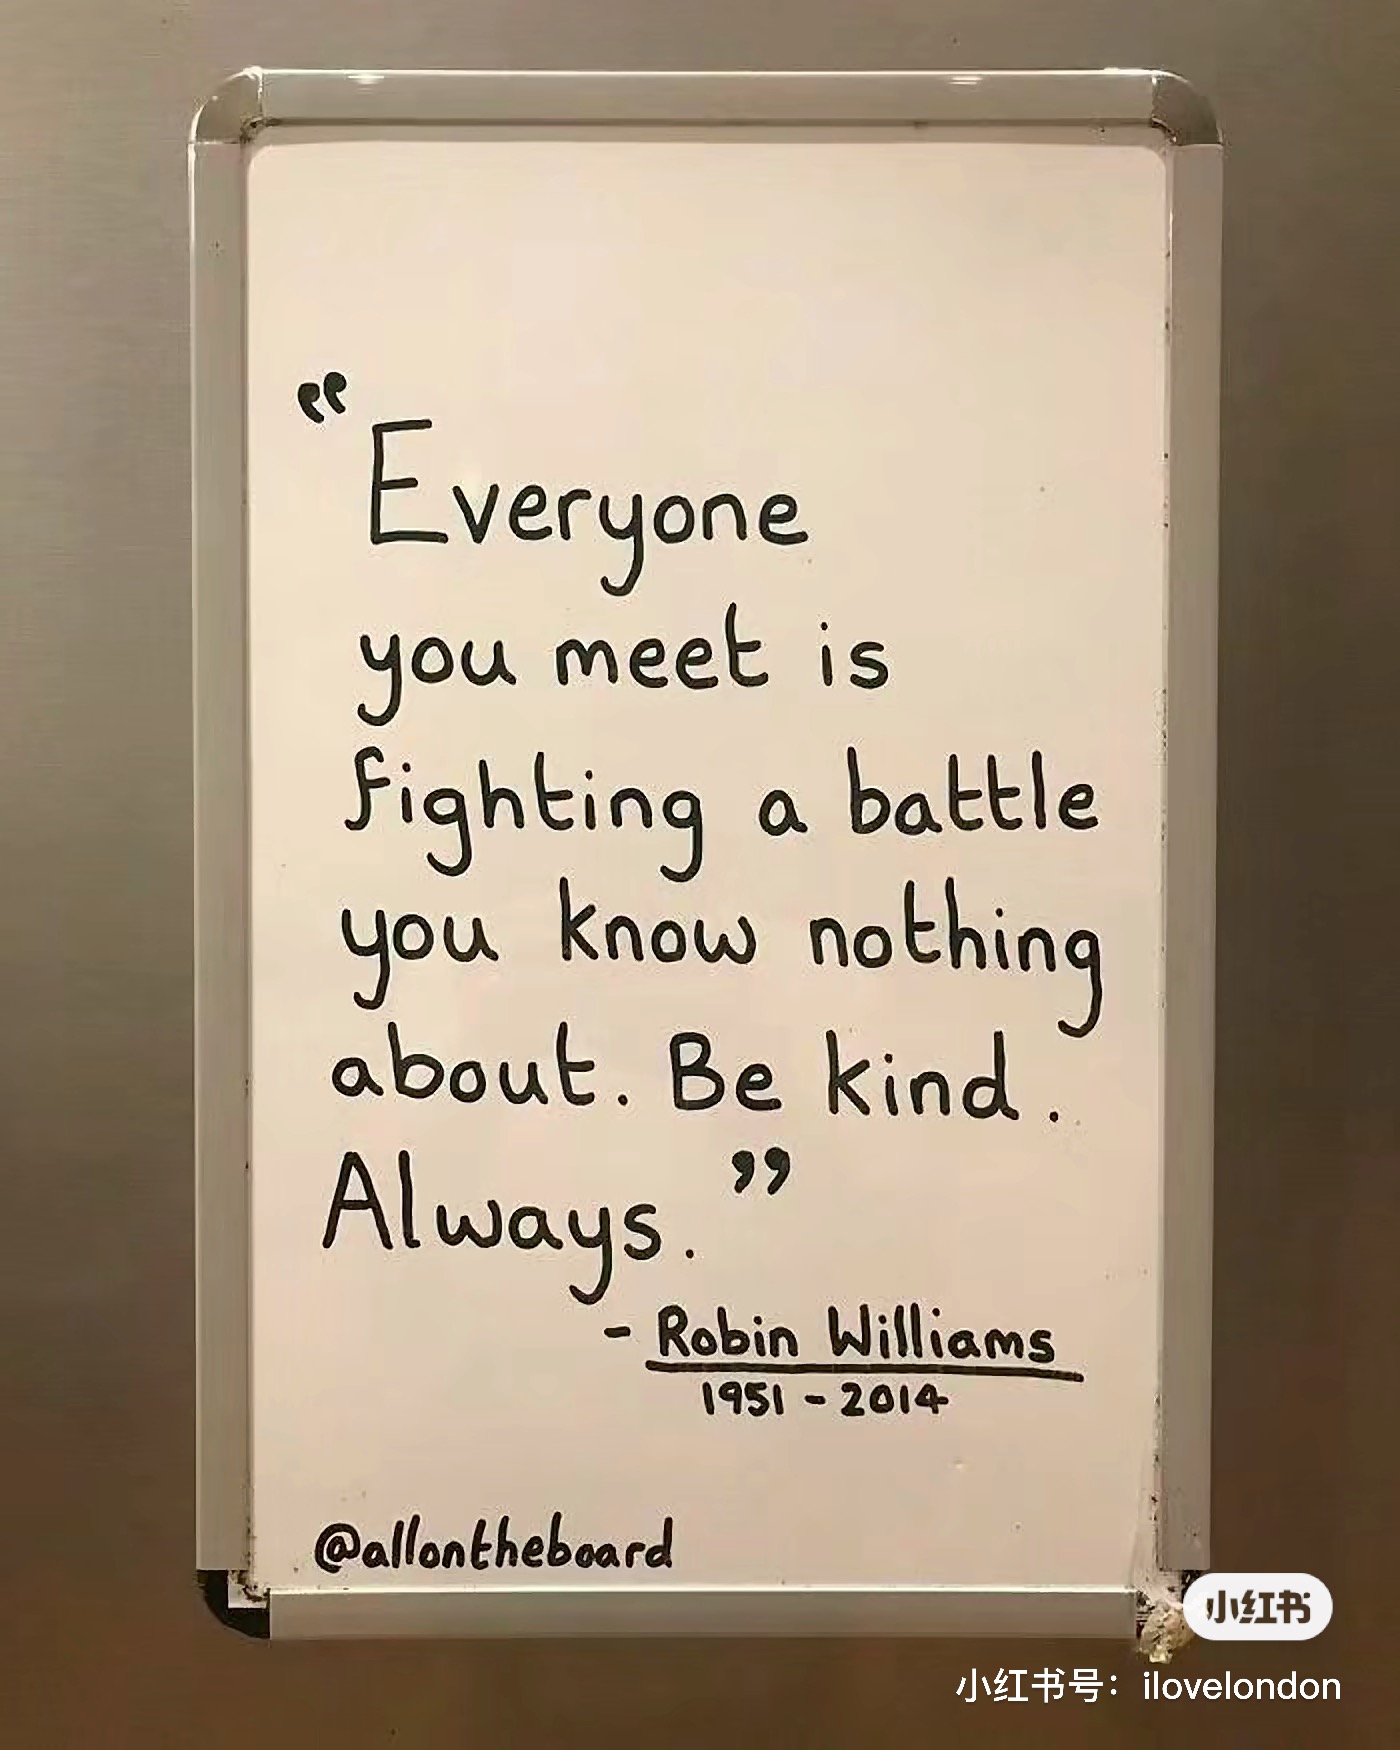 “Everyone
you meet is
fighting a battle
you know nothing
about. Be kind.
Always.”
- Robin Williams
1951 - 2014
@allontheboard
小红书
小红书号：ilovelondon